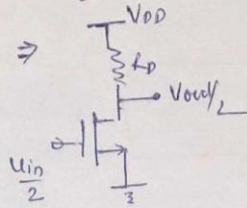 ⇒
VDD
RD
Vout/2
Uin/2